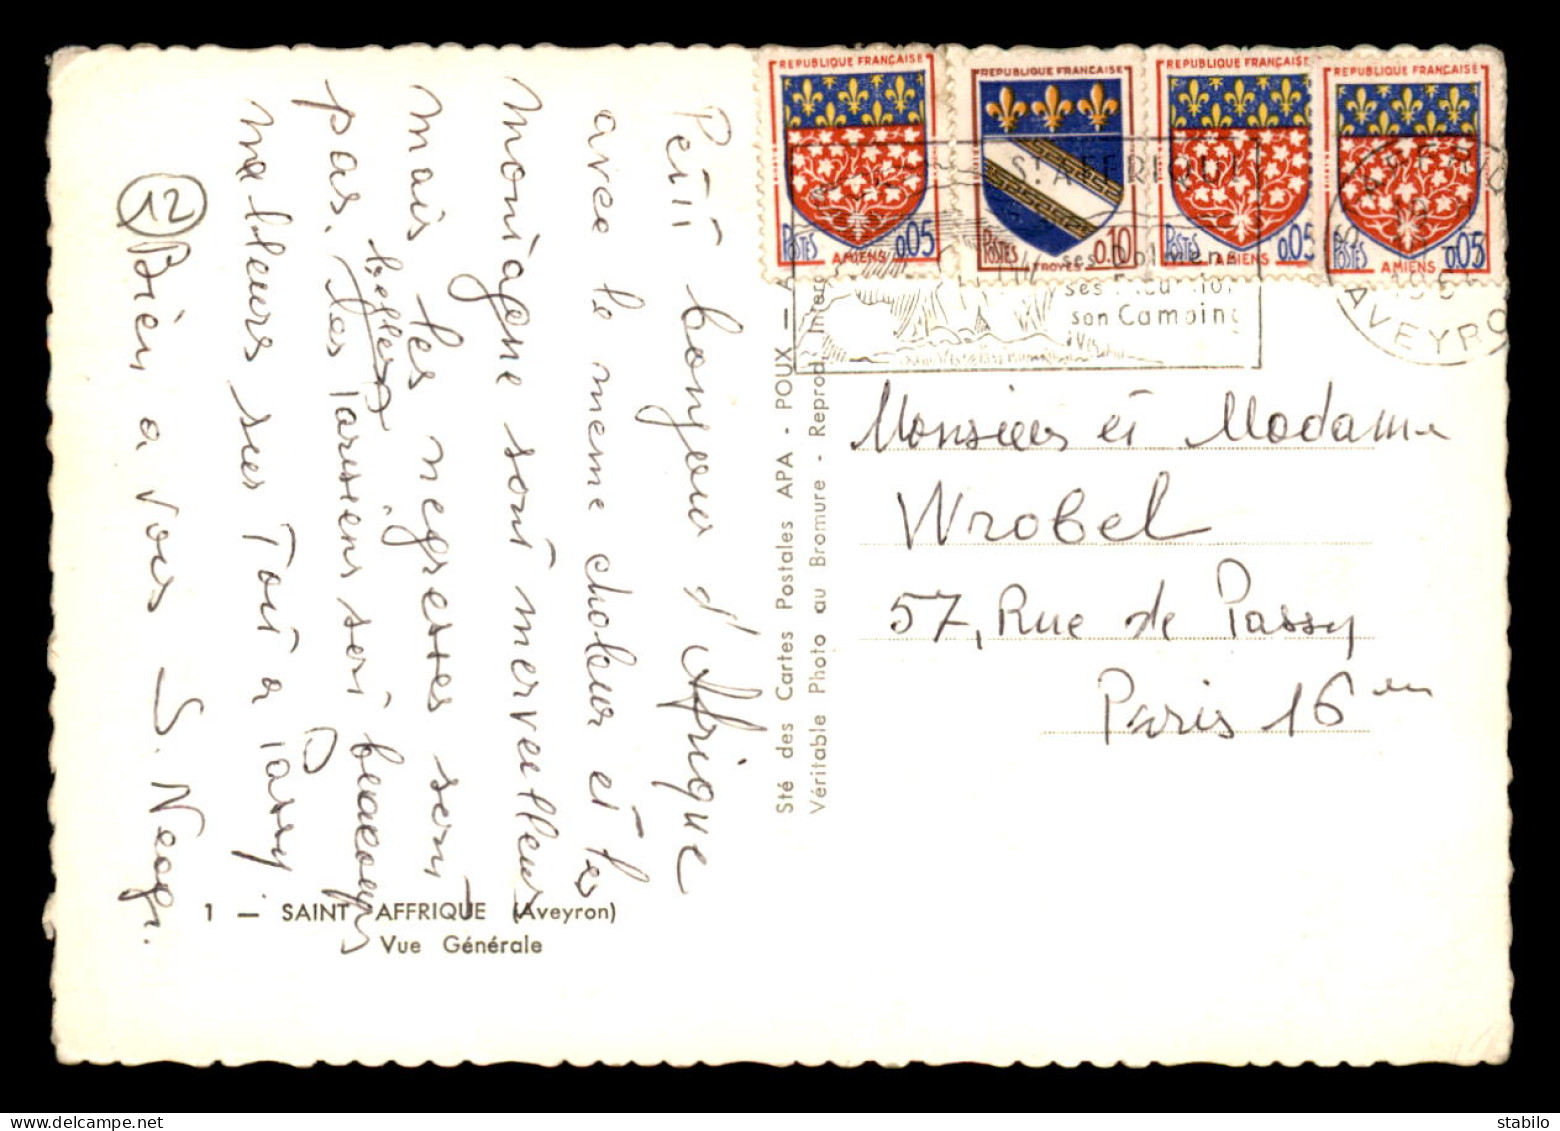 Petit bonjour d'Afrique
avec la meme chaleur et les
montagne sont merveilleux
mais les négresses sont
pas belles. les Parisiens sont beaucoup
meilleurs sur Tout a Passy
Bien a vous S. Negr.
12
1 — SAINT AFFRIQUE (Aveyron)
Vue Générale
Sté des Cartes Postales APA - POUX — A
Véritable Photo au Bromure - Reprod. Interd
REPUBLIQUE FRANÇAISE
POSTES 0,05
AMIENS
REPUBLIQUE FRANÇAISE
POSTES 0,10
TROYES
REPUBLIQUE FRANÇAISE
POSTES 0,05
AMIENS
REPUBLIQUE FRANÇAISE
POSTES 0,05
AMIENS
ST AFFRIQUE
ses Dolmens
ses Excursio
son Camping
AVEYRO
Monsieur et Madame
Wrobel
57, Rue de Passy
Paris 16em